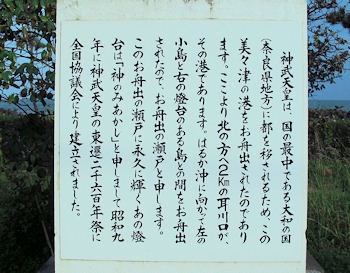 神武天皇は、国の最中である大和の国
(奈良県地方)に都を移されるため、この
美々津の港をお舟出されたのであり
ます。ここより北の方へ2Kmの耳川口が、
その港であります。はるか沖に向かって左の
小島と右の燈台のある島との間をお舟出
されたので、お舟出の瀬戸と申します。
このお舟出の瀬戸に永久に輝くあの燈
台は「神のみあかし」と申しまして昭和九
年に神武天皇の東遷二千六百年祭に
全国協議会により建立されました。